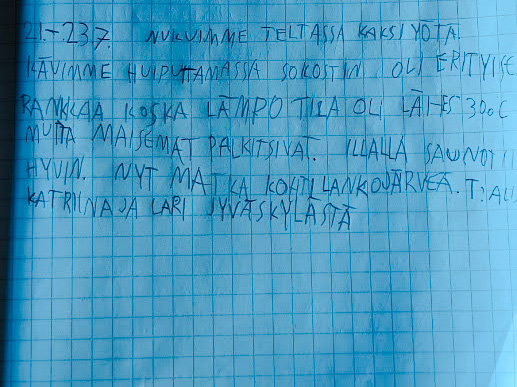 21.-23.7. NUKUIMME TELTASSA KAKSI YÖTÄ.
KÄVIMME HUIPUTTAMASSA SOKOSTIN. OLI ERITYISE
RANKKAA KOSKA LÄMPÖTILA OLI LÄHES 30°C
MUTTA MAISEMAT PALKITSIVAT. ILLALLA
HYVIN. NYT MATKA KOHTI LANKOJÄRVEÄ. T:
KATRIINA JA LARI JYVÄSKYLÄSTÄ